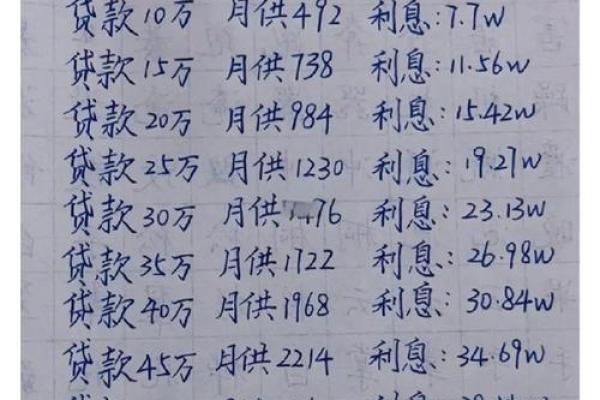 贷款10万 月供492 利息:7.7w
贷款15万 月供738 利息:11.56w
贷款20万 月供984 利息:15.42w
贷款25万 月供1230 利息:19.27w
贷款30万 月供1476 利息:23.13w
贷款35万 月供1722 利息:26.98w
贷款40万 月供1968 利息:30.84w
贷款45万 月供2214 利息:34.69w